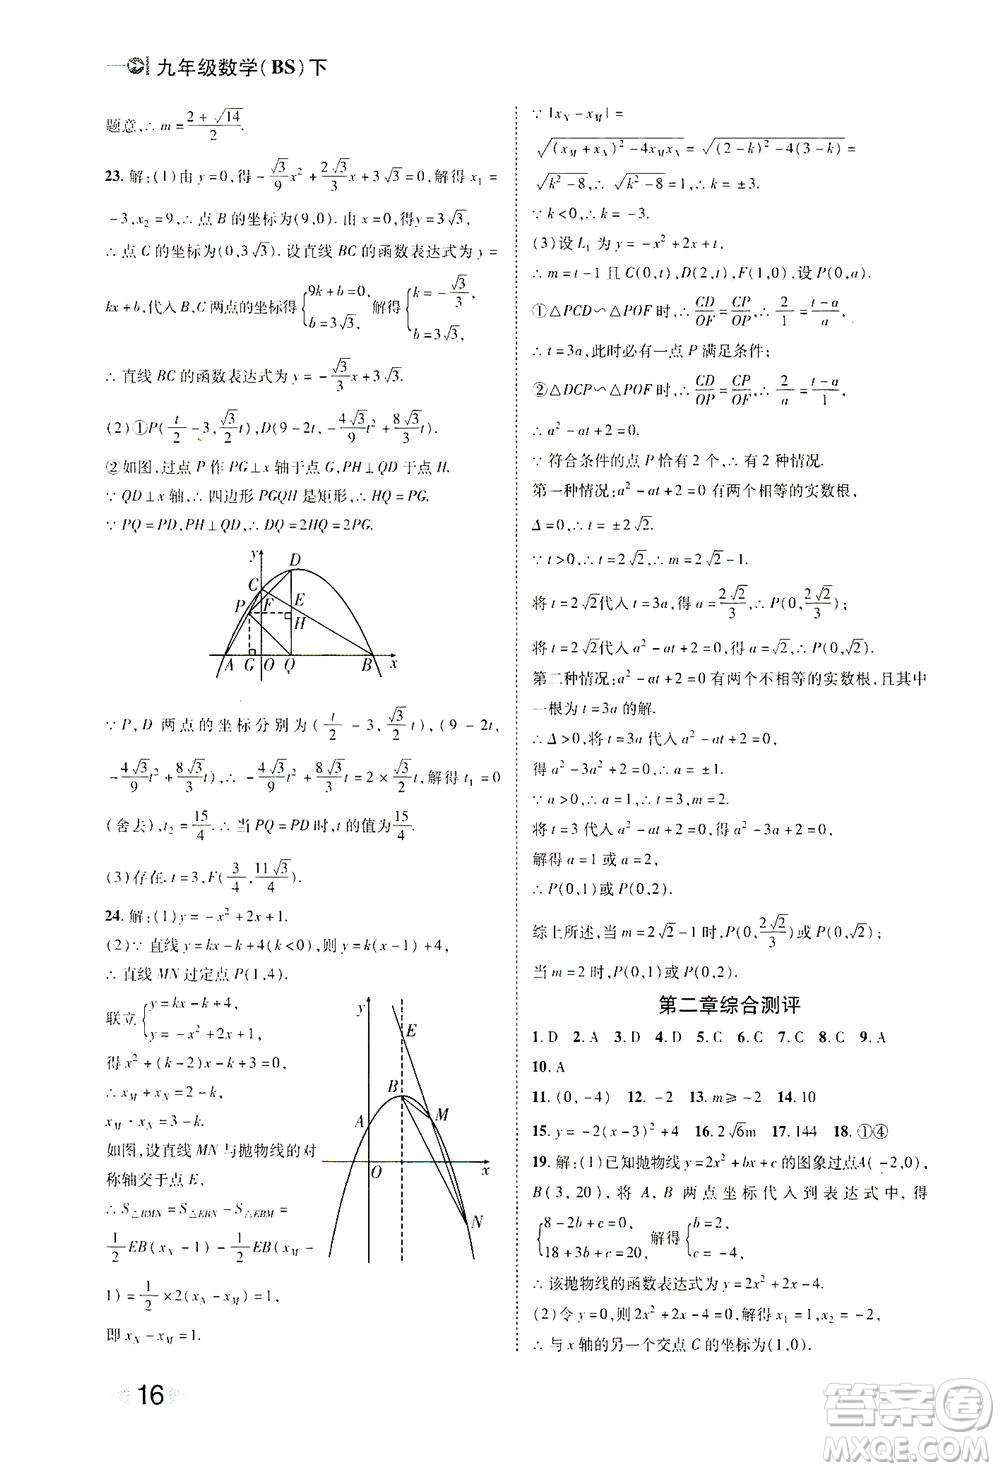 九年级数学(BS)下
题意,∴ m = (2 + √14)/2.
23. 解:(1)由 y = 0,得 - (√3/9)x² + (2√3/3)x + 3√3 = 0,解得 x₁ =
- 3, x₂ = 9,∴ 点 B 的坐标为(9,0). 由 x = 0,得 y = 3√3.
∴ 点 C 的坐标为(0,3√3). 设直线 BC 的函数表达式为 y =
kx + b,代入 B,C 两点的坐标得 {9k + b = 0, b = 3√3, 解得 {k = - √3/3, b = 3√3,
∴ 直线 BC 的函数表达式为 y = - (√3/3)x + 3√3.
(2)①P(t/2 - 3, (√3/2)t), D(9 - 2t, - (4√3/9)t² + (8√3/3)t).
②如图,过点 P 作 PG⊥x 轴于点 G,PH⊥QD 于点 H.
∵ QD⊥x 轴,∴ 四边形 PGQH 是矩形,∴ HQ = PG.
∵ PQ = PD, PH⊥QD,∴ DQ = 2HQ = 2PG.
y
D
C
P F E
H
A G O Q B x
∵ P, D 两点的坐标分别为(t/2 - 3, (√3/2)t), (9 - 2t,
- (4√3/9)t² + (8√3/3)t),∴ - (4√3/9)t² + (8√3/3)t = 2 × (√3/2)t,解得 t₁ = 0
(舍去), t₂ = 15/4. ∴ 当 PQ = PD 时, t 的值为 15/4.
(3)存在. t = 3, F(3/4, 11√3/4).
24. 解:(1)y = - x² + 2x + 1.
(2)∵ 直线 y = kx - k + 4(k < 0),则 y = k(x - 1) + 4,
∴ 直线 MN 过定点 P(1,4).
联立 {y = kx - k + 4, y = - x² + 2x + 1,
得 x² + (k - 2)x - k + 3 = 0.
∴ x_M + x_N = 2 - k,
x_M · x_N = 3 - k.
如图,设直线 MN 与抛物线的对
称轴交于点 E,
∴ S△BMN = S△EBN - S△EBM =
1/2 EB(x_N - 1) - 1/2 EB(x_M -
1) = 1/2 × 2(x_N - x_M) = 1,
即 x_N - x_M = 1.
y
E
B
M
A
O x
N
16
∵ |x_N - x_M| =
√((x_M + x_N)² - 4x_M x_N) = √((2 - k)² - 4(3 - k)) =
√(k² - 8),∴ √(k² - 8) = 1,∴ k = ±3.
∵ k < 0,∴ k = - 3.
(3)设 L₁ 为 y = - x² + 2x + t,
∴ m = t - 1 且 C(0,t), D(2,t), F(1,0),设 P(0,a).
①△PCD∽△POF 时,∴ CD/OF = CP/OP,∴ 2/1 = (t - a)/a,
∴ t = 3a,此时必有一点 P 满足条件;
②△DCP∽△POF 时,∴ CD/OP = CP/OF,∴ 2/a = (t - a)/1,
∴ a² - at + 2 = 0.
∵ 符合条件的点 P 恰有 2 个,∴ 有 2 种情况.
第一种情况:a² - at + 2 = 0 有两个相等的实数根,
Δ = 0,∴ t = ±2√2.
∵ t > 0,∴ t = 2√2,∴ m = 2√2 - 1.
将 t = 2√2代入 t = 3a,得 a = 2√2/3,∴ P(0, 2√2/3);
将 t = 2√2代入 a² - at + 2 = 0,得 a = √2,∴ P(0,√2).
第二种情况:a² - at + 2 = 0 有两个不相等的实数根,其中
一根为 t = 3a 的解.
∴ Δ > 0,将 t = 3a 代入 a² - at + 2 = 0,
得 a² - 3a² + 2 = 0,∴ a = ±1.
∵ a > 0,∴ a = 1,∴ t = 3,∴ m = 2.
将 t = 3 代入 a² - at + 2 = 0,得 a² - 3a + 2 = 0,
解得 a = 1 或 a = 2,
∴ P(0,1)或 P(0,2).
综上所述,当 m = 2√2 - 1 时, P(0, 2√2/3)或 P(0,√2);
当 m = 2 时, P(0,1)或 P(0,2).
第二章综合测评
1. D 2. A 3. D 4. D 5. C 6. C 7. C 8. C 9. A
10. A
11. (0, -4) 12. -2 13. m ≥ -2 14. 10
15. y = -2(x - 3)² + 4 16. 2√6m 17. 144 18. ①④
19. 解:(1)已知抛物线 y = 2x² + bx + c 的图象过点A( -2,0),
B(3, 20), 将 A, B 两点坐标代入到表达式中,得
{8 - 2b + c = 0, 18 + 3b + c = 20, 解得{b = 2, c = -4,
∴ 该抛物线的函数表达式为 y = 2x² + 2x - 4.
(2)令 y = 0,则2x² + 2x - 4 = 0,解得 x₁ = 1, x₂ = -2,
∴ 与 x 轴的另一个交点 C 的坐标为(1,0).
答案圈
MXQE.COM